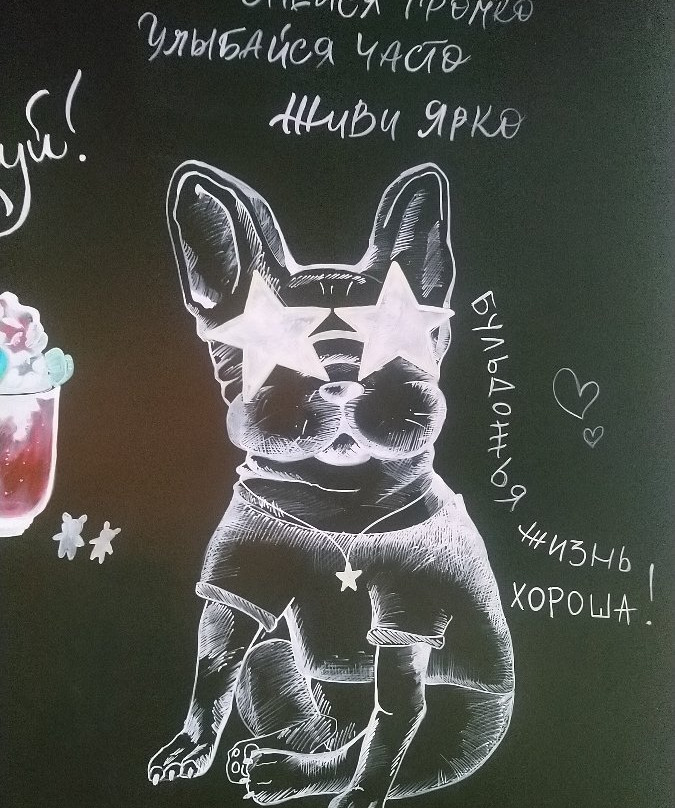 ГРОМКО
Улыбайся часто
Живи ярко
Бульдожья
жизнь
хороша!